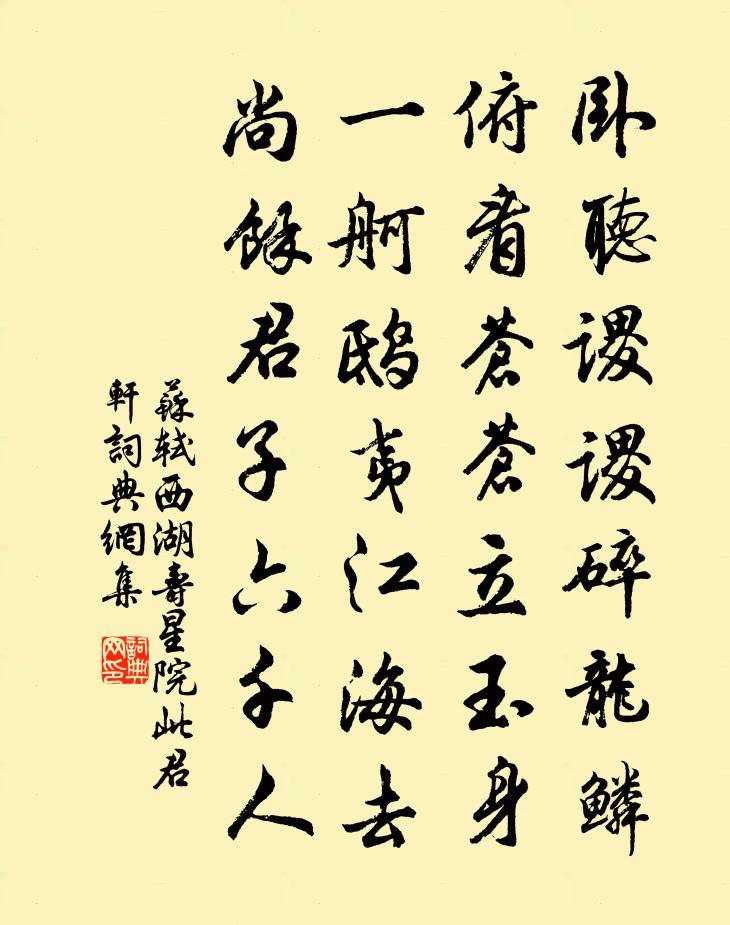 卧聽謖謖碎龍鱗
俯看蒼蒼立玉身
一舸鴟夷江海去
尚餘君子六千人
蘇軾西湖壽星院此君
軒詞典網集
詞典
网印